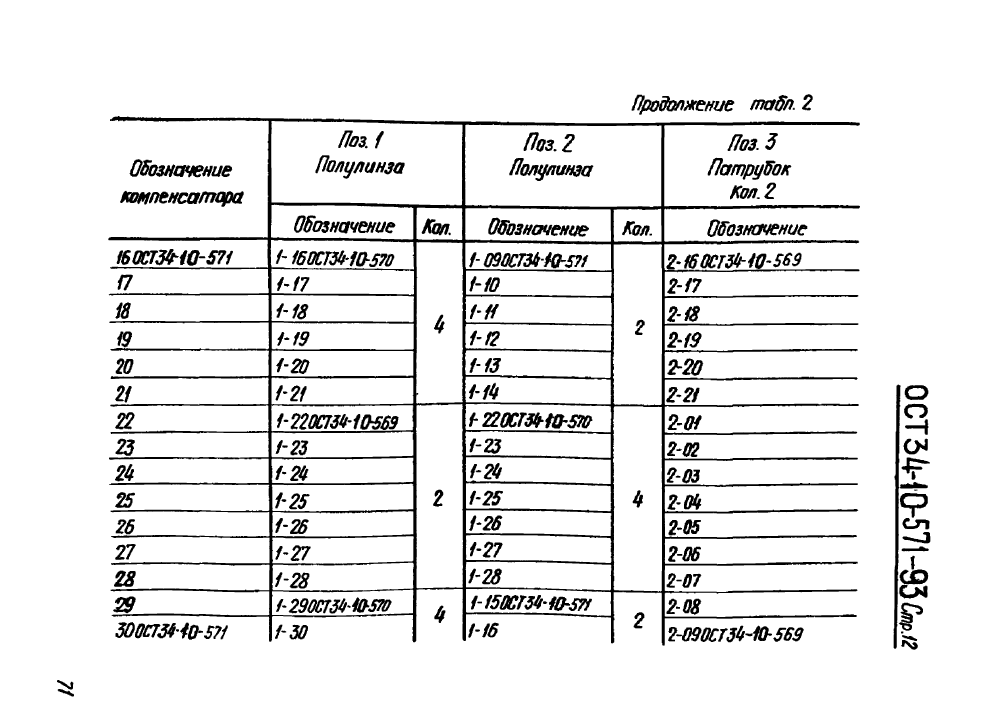 Продолжение табл. 2
Обозначение компенсатора
Поз. 1 Полулинза
Поз. 2 Полулинза
Поз. 3 Патрубок Кол. 2
Обозначение Кол. Обозначение Кол. Обозначение
16 ОСТ34-10-571 1-16ОСТ34-10-570 4 1-09ОСТ34-10-571 2 2-16 ОСТ34-10-569
17 1-17 1-10 2-17
18 1-18 1-11 2-18
19 1-19 1-12 2-19
20 1-20 1-13 2-20
21 1-21 1-14 2-21
22 1-22ОСТ34-10-569 2 1-22ОСТ34-10-570 4 2-01
23 1-23 1-23 2-02
24 1-24 1-24 2-03
25 1-25 1-25 2-04
26 1-26 1-26 2-05
27 1-27 1-27 2-06
28 1-28 1-28 2-07
29 1-29ОСТ34-10-570 4 1-15ОСТ34-10-571 2 2-08
30ОСТ34-10-571 1-30 1-16 2-09ОСТ34-10-569
ОСТ34-10-571-93 Стр.12
71